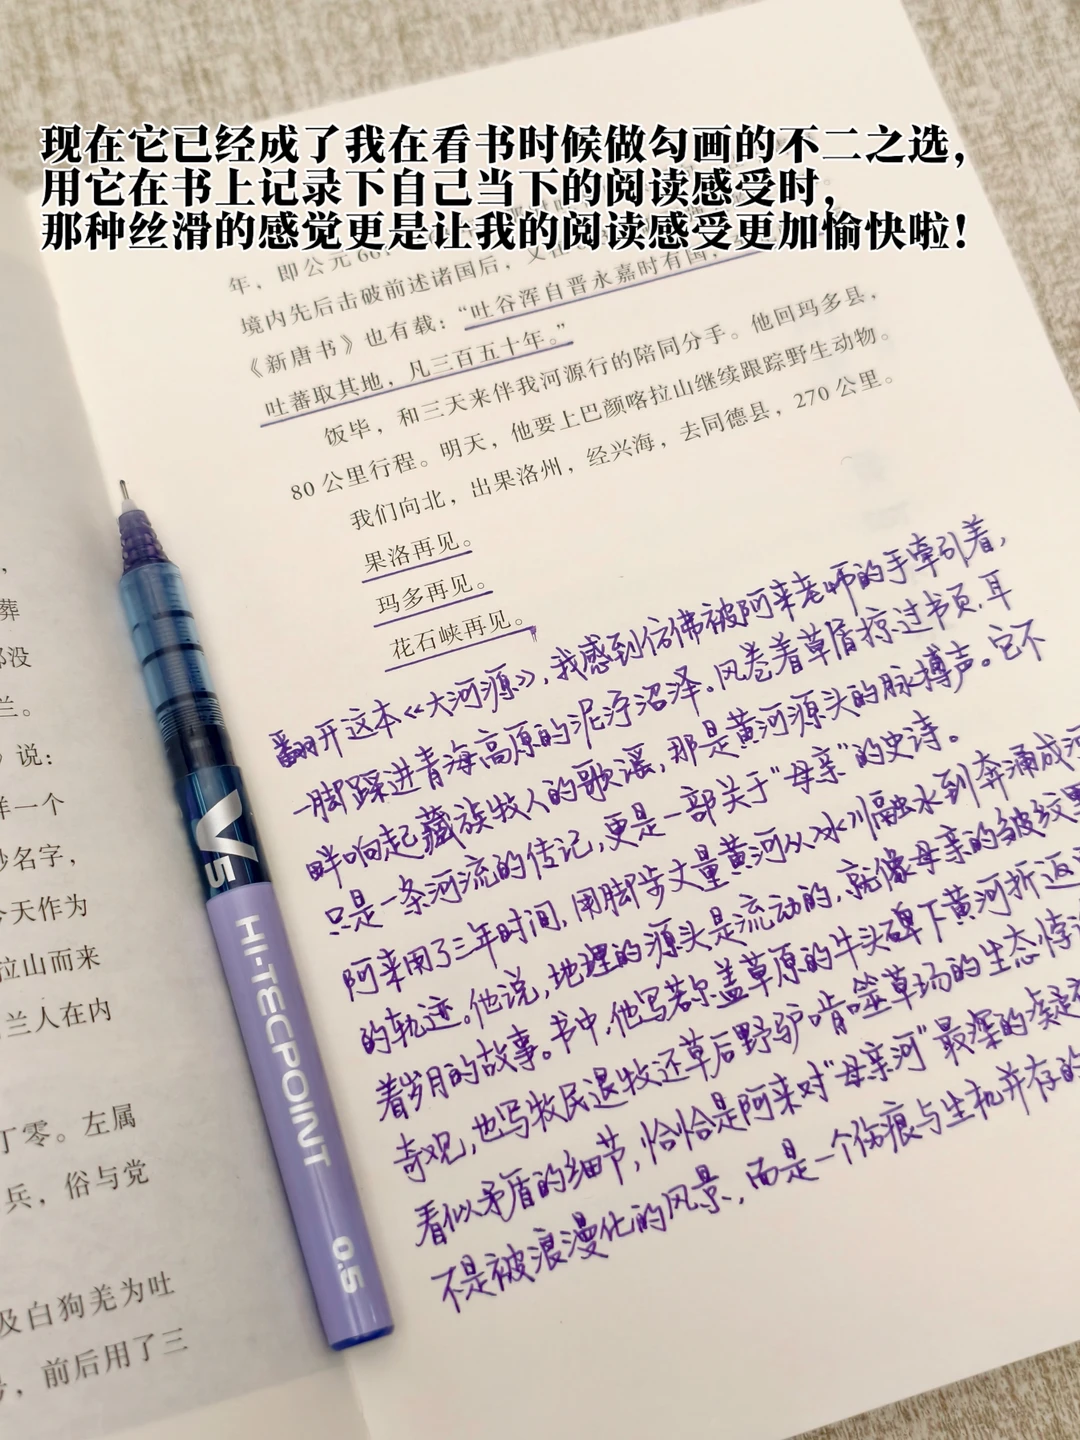 现在它已经成了我在看书时候做勾画的不二之选，
用它在书上记录下自己当下的阅读感受时，
那种丝滑的感觉更是让我的阅读感受更加愉快啦！
年，即公元66
境内先后击破前述诸国后，又在
《新唐书》也有载：“吐谷浑自晋永嘉时有国，
吐蕃取其地，凡三百五十年。”
饭毕，和三天来伴我河源行的陪同分手。他回玛多县，
80公里行程。明天，他要上巴颜喀拉山继续跟踪野生动物。
我们向北，出果洛州，经兴海，去同德县，270公里。
果洛再见。
玛多再见。
花石峡再见。
翻开这本《大河源》，我感到仿佛被阿来老师的手牵引着，
一脚踩进青海高原的泥泞沼泽。风卷着草屑掠过书页，耳
畔响起藏族牧人的歌谣，那是黄河源头的脉搏声。它不
只是一条河流的传记，更是一部关于“母亲”的史诗。
阿来用了三年时间，用脚步丈量黄河从冰川融水到奔涌成河
的轨迹。他说，地理的源头是流动的，就像母亲的皱纹里
着岁月的故事。书中，他写若尔盖草原的牛头碑下黄河折返
奇观，也写牧民退牧还草后野驴啃噬草场的生态悖
看似矛盾的细节，恰恰是阿来对“母亲河”最深的凝
不是被浪漫化的风景，而是一个伤痕与生机并存的
葬
没
兰。
》说：
样一个
名字，
今天作为
拉山而来
兰人在内
丁零。左属
兵，俗与党
及白狗羌为吐
，前后用了三
V5
HI-TECPOINT
0.5